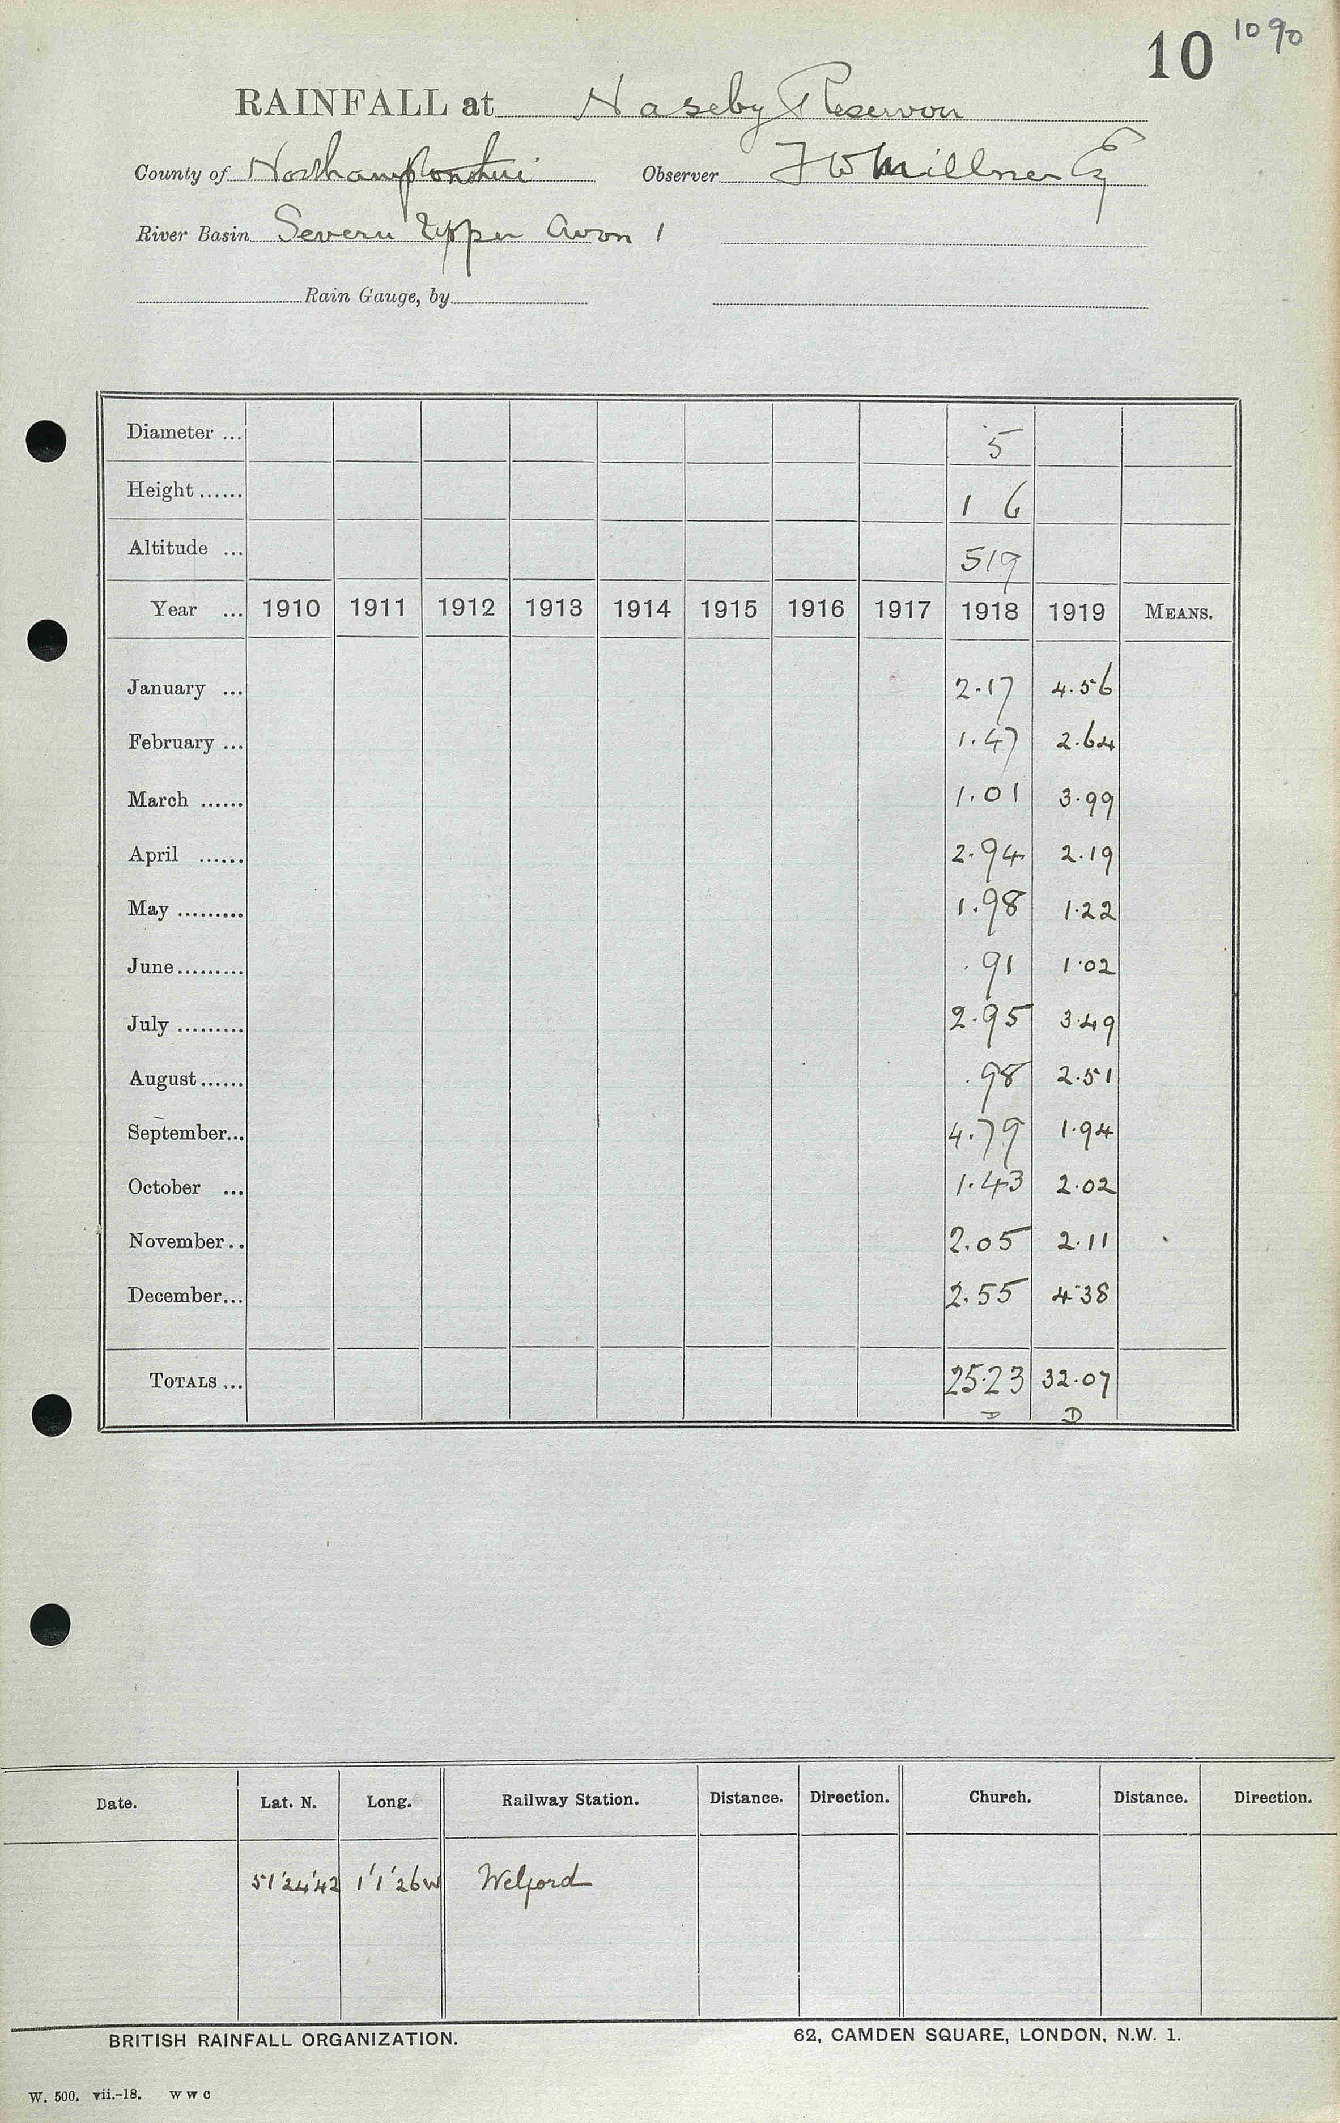 10 1090
RAINFALL at Naseby Reservoir
County of Northamptonshire Observer F W Millner Esq
River Basin Severn Upper Avon 1
Rain Gauge, by
Diameter ... 5
Height ...... 1 6
Altitude ... 519
Year ... 1910 1911 1912 1913 1914 1915 1916 1917 1918 1919 MEANS.
January ... 2.17 4.56
February ... 1.47 2.64
March ...... 1.01 3.99
April ...... 2.94 2.19
May ......... 1.98 1.22
June ......... .91 1.02
July ......... 2.95 3.49
August ...... .98 2.51
September... 4.79 1.94
October ... 1.43 2.02
November .. 2.05 2.11
December... 2.55 4.38
TOTALS ... 25.23 32.07
D D
Date. Lat. N. Long. Railway Station. Distance. Direction. Church. Distance. Direction.
51'24'42 1'1'26W Welford
BRITISH RAINFALL ORGANIZATION. 62, CAMDEN SQUARE, LONDON, N.W. 1.
W. 500. vii.-18. W W C